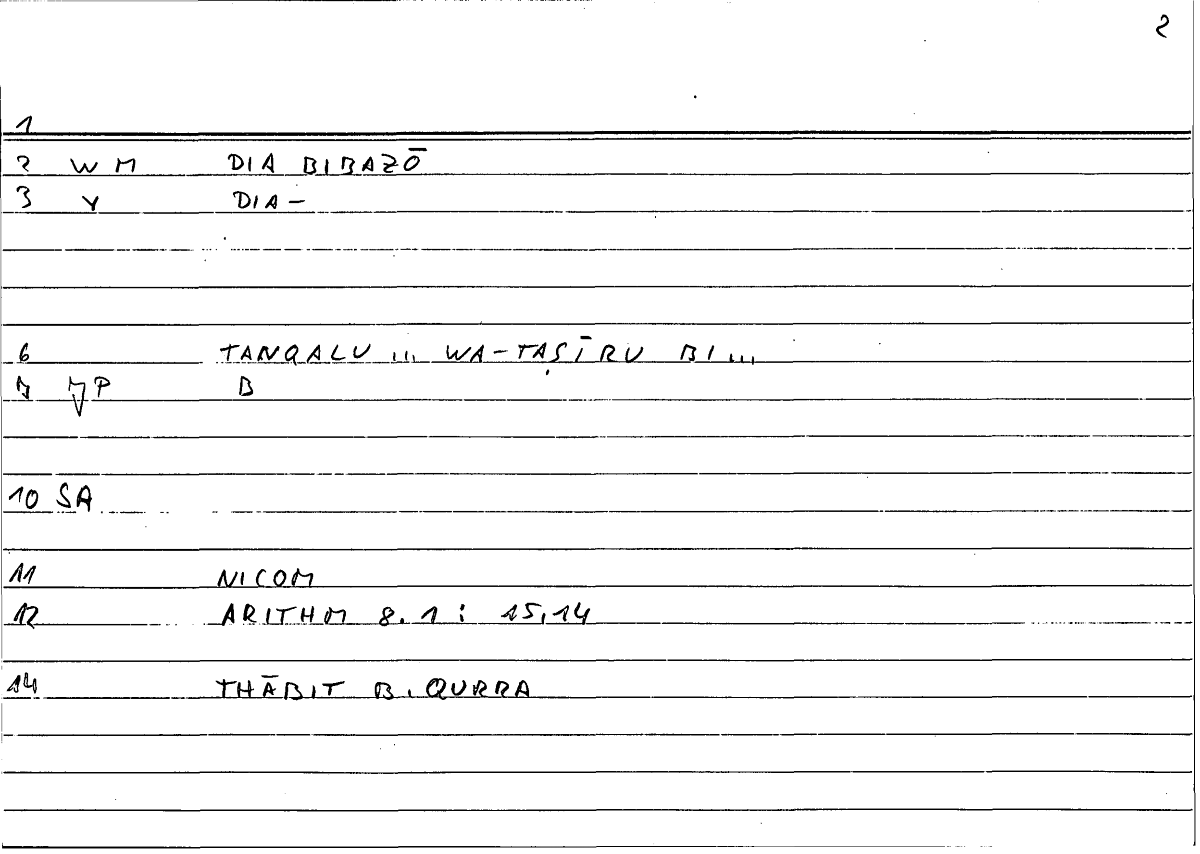 2
1
2 W M DIA BIBAZŌ
3 Y DIA -
6 TANQALU ... WA-TAṢĪRU BI ...
P B
10 SA
11 NICOM
12 ARITHM 8.1 : 15,14
14 THĀBIT B. QURRA